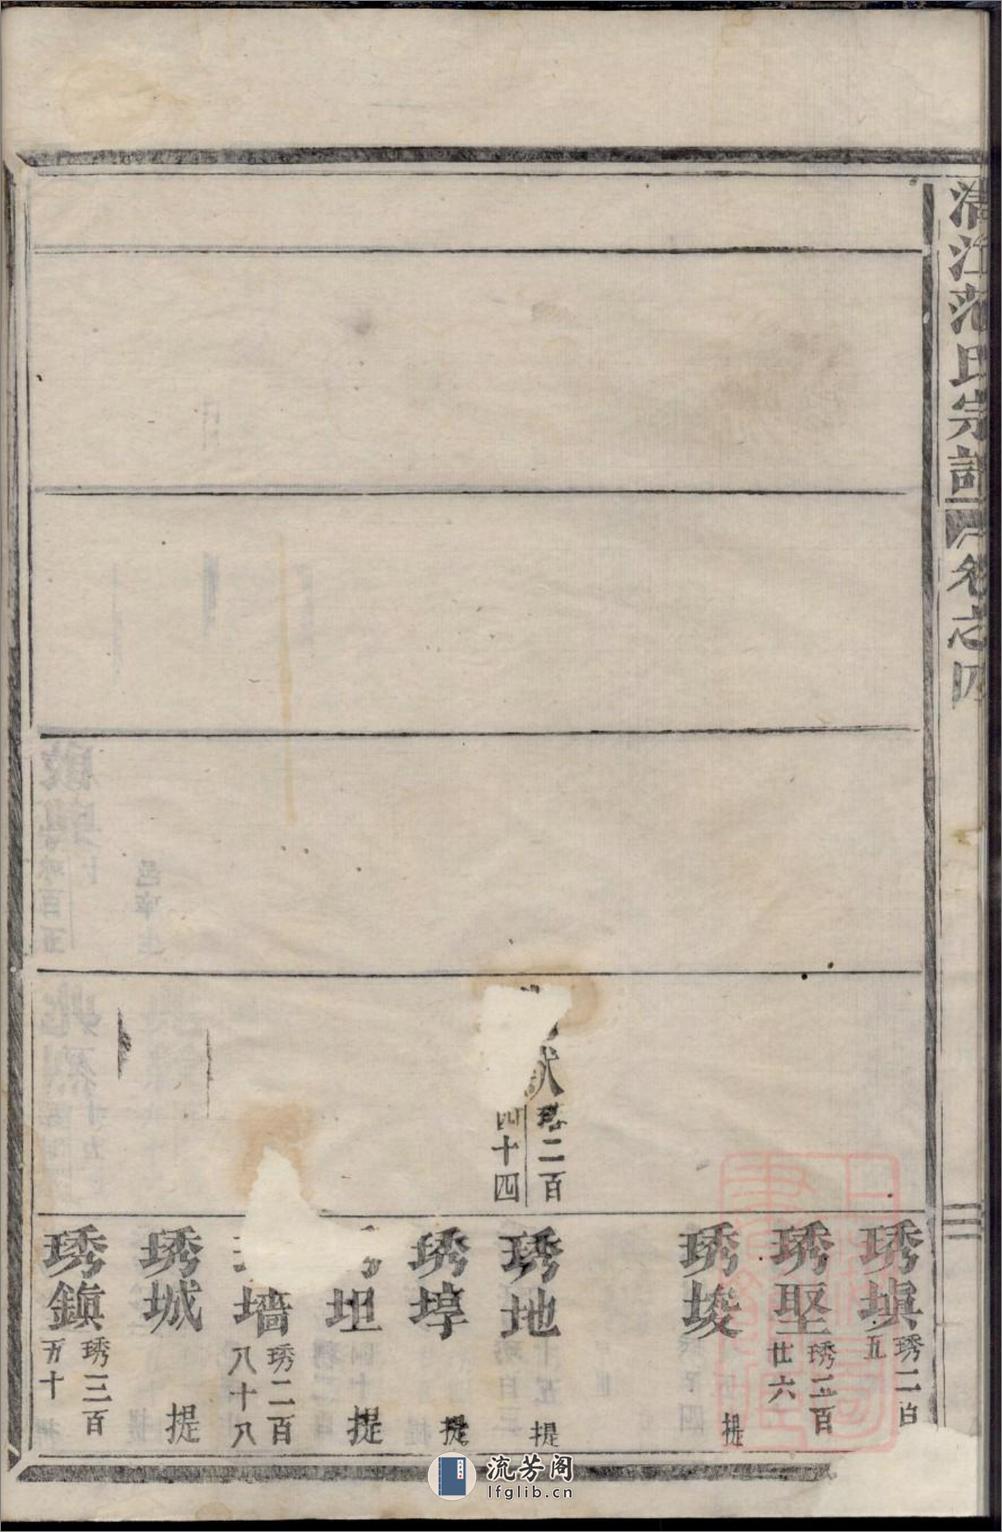 清江范氏宗譜
卷之四
琇二百
四十四
琇塡
琇二百
五
琇堅
琇二百
廿六
琇埈
提
琇地
提
琇埻
提
坦
提
墻
琇二百
八十八
琇城
提
琇鎭
琇三百
五十
流芳阁
lfglib.cn